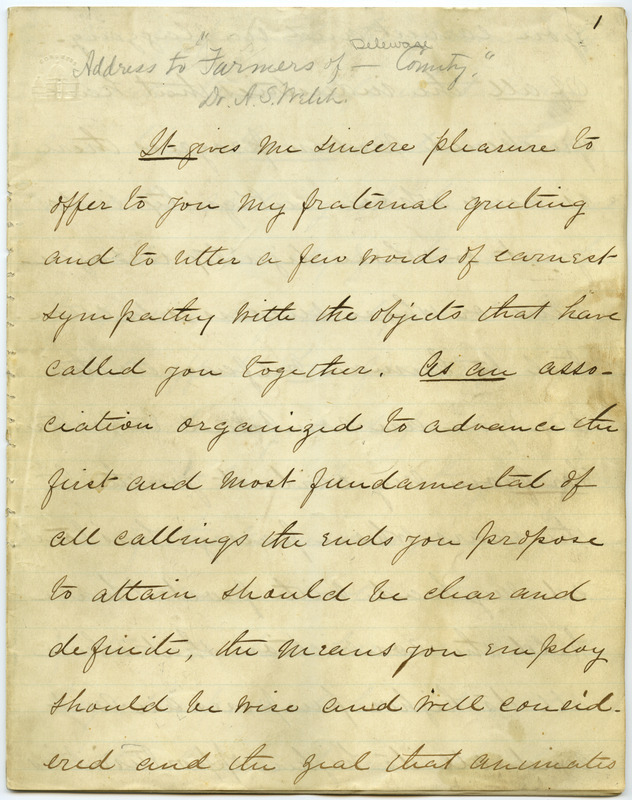 1
Delewase
Address to "Farmers of — County."
Dr. A. S. Welch.
It gives me sincere pleasure to
offer to you my fraternal greeting
and to utter a few words of earnest
sympathy with the objects that have
called you together. As an asso-
ciation organized to advance the
first and most fundamental of
all callings the ends you propose
to attain should be clear and
definite, the means you employ
should be wise and well consid-
ered and the zeal that animates